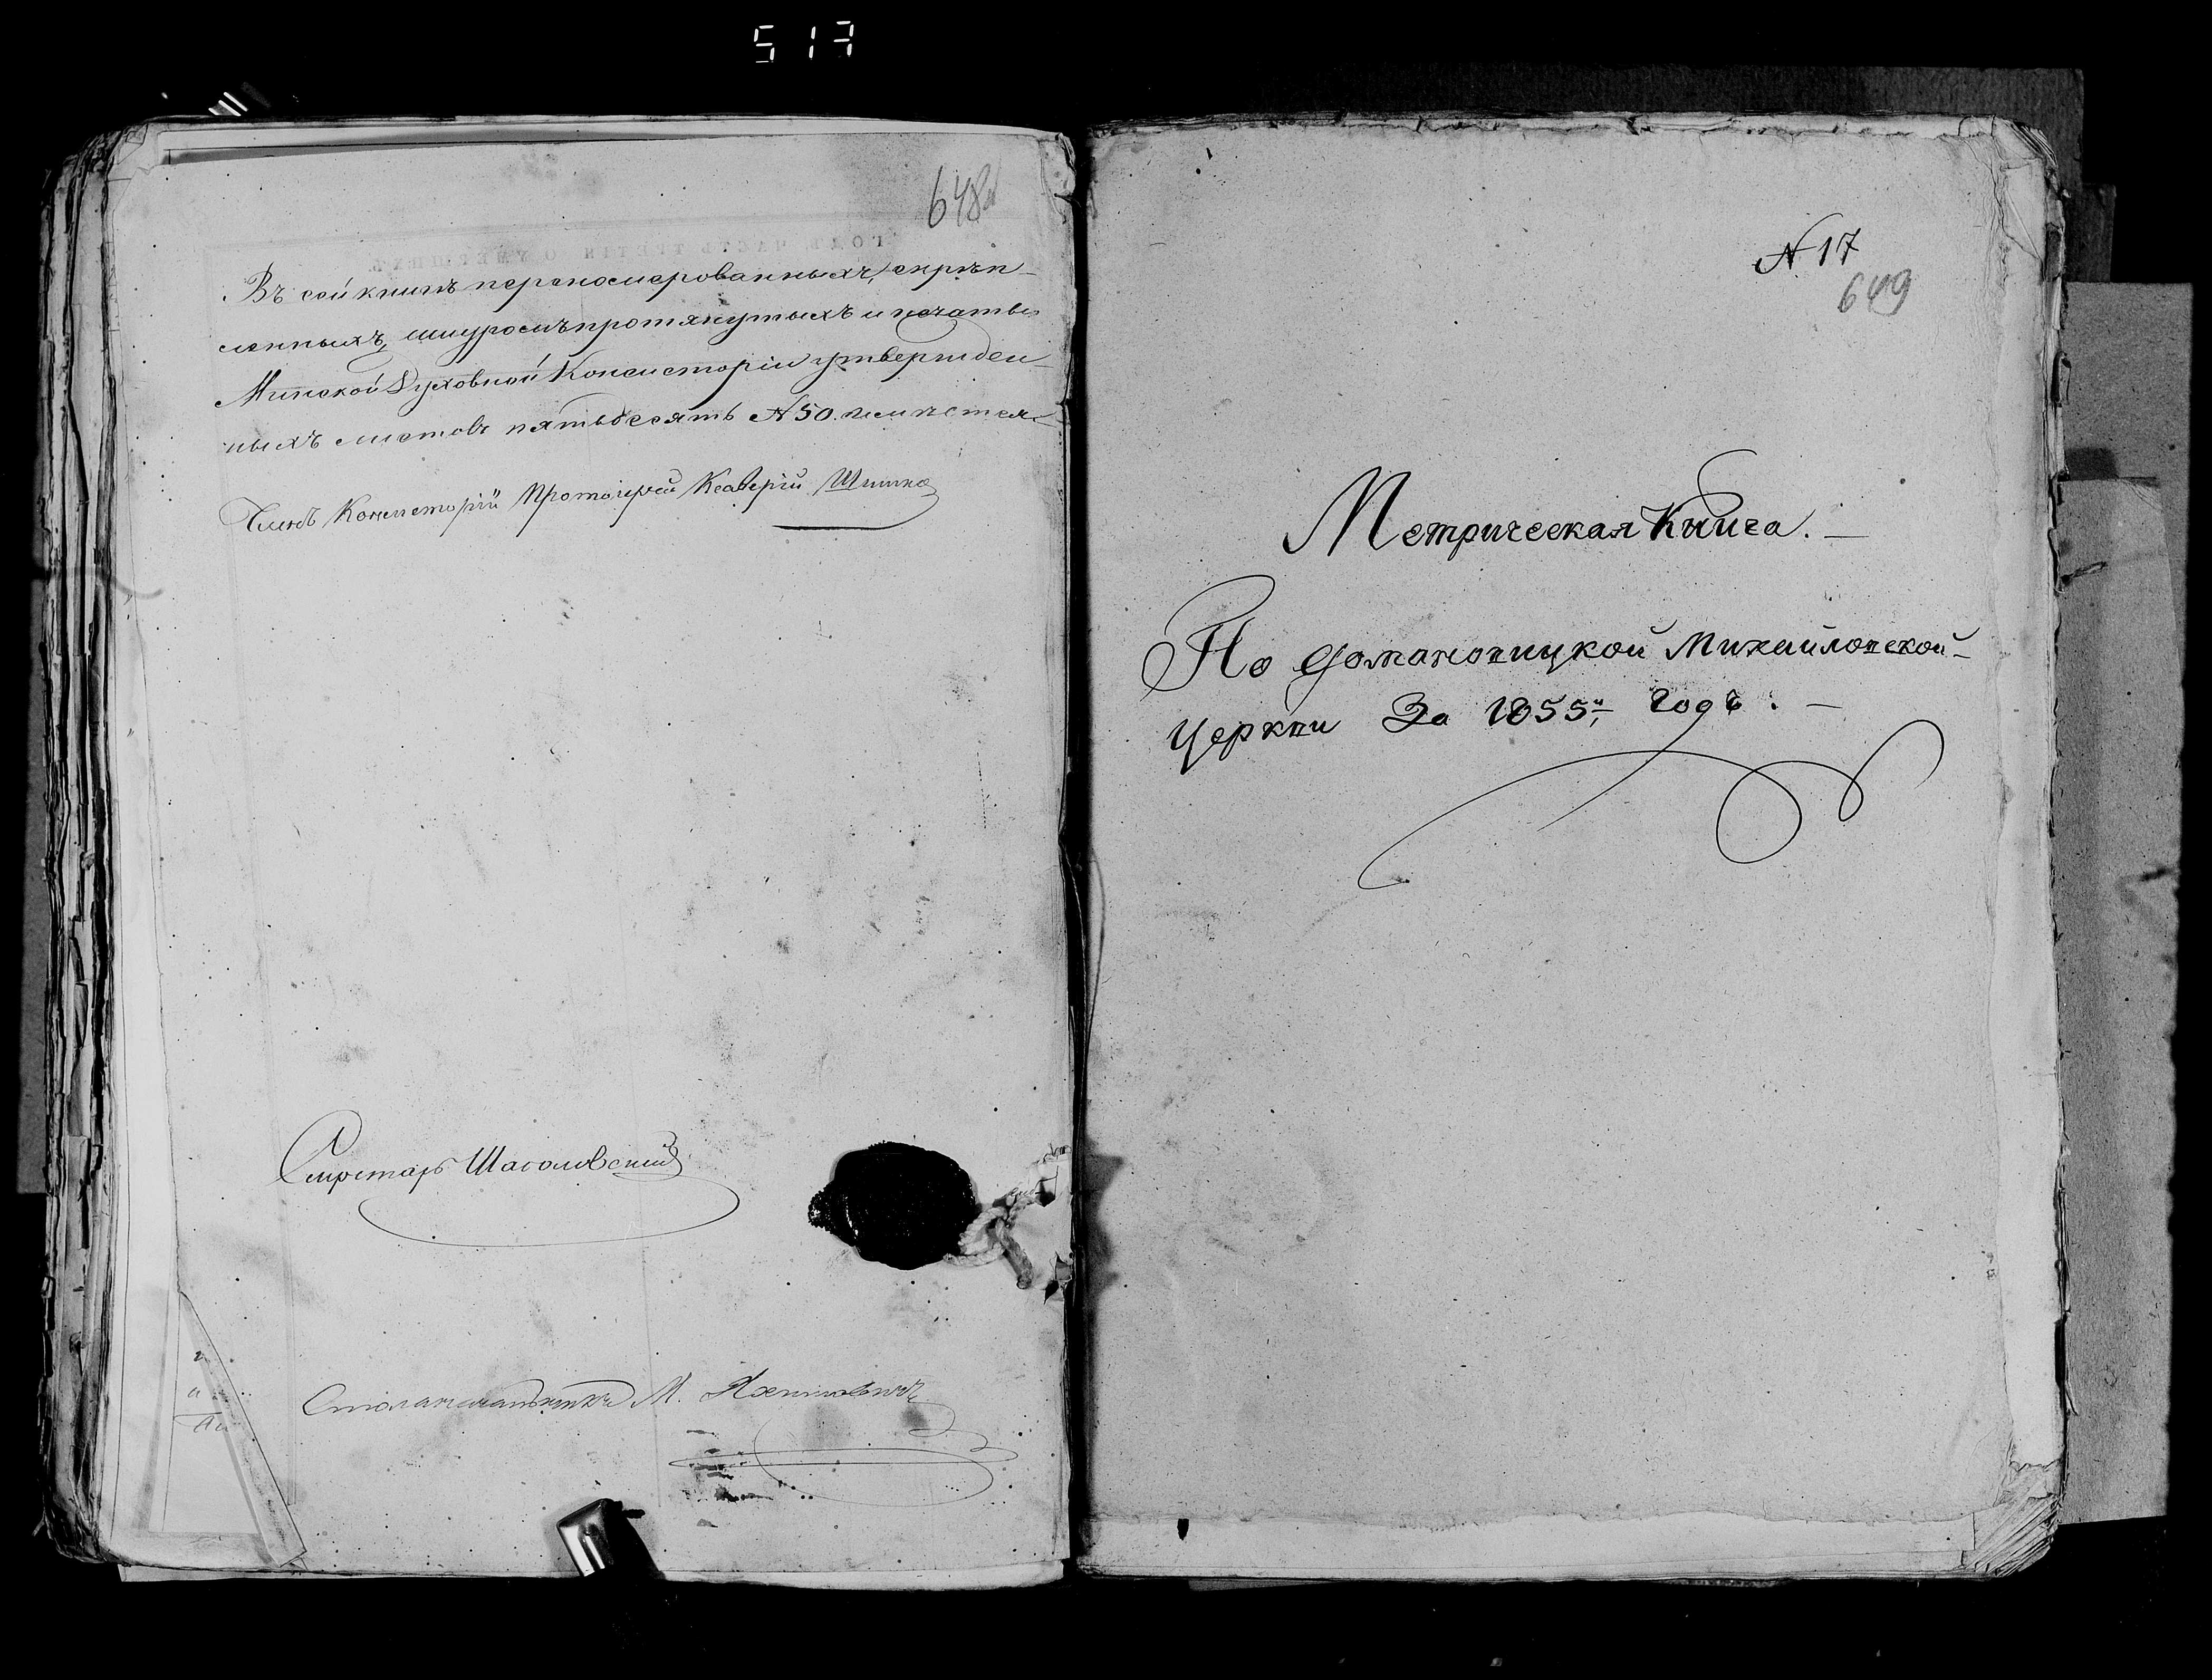 517
648
Въ сей книгѣ перенумерованныхъ, скрѣп-
ленныхъ, шнуромъ протянутыхъ и печатью
Минской Духовной Консисторіи утвержден-
ныхъ листовъ пятьдесятъ N 50.
Членъ Консисторіи Протоіерей Ксаверій
Секретарь
Столоначальникъ М.
N 17
649
Метрическая Книга. —
По Домановицкой Михайловской
церкви За 1855й годъ. —